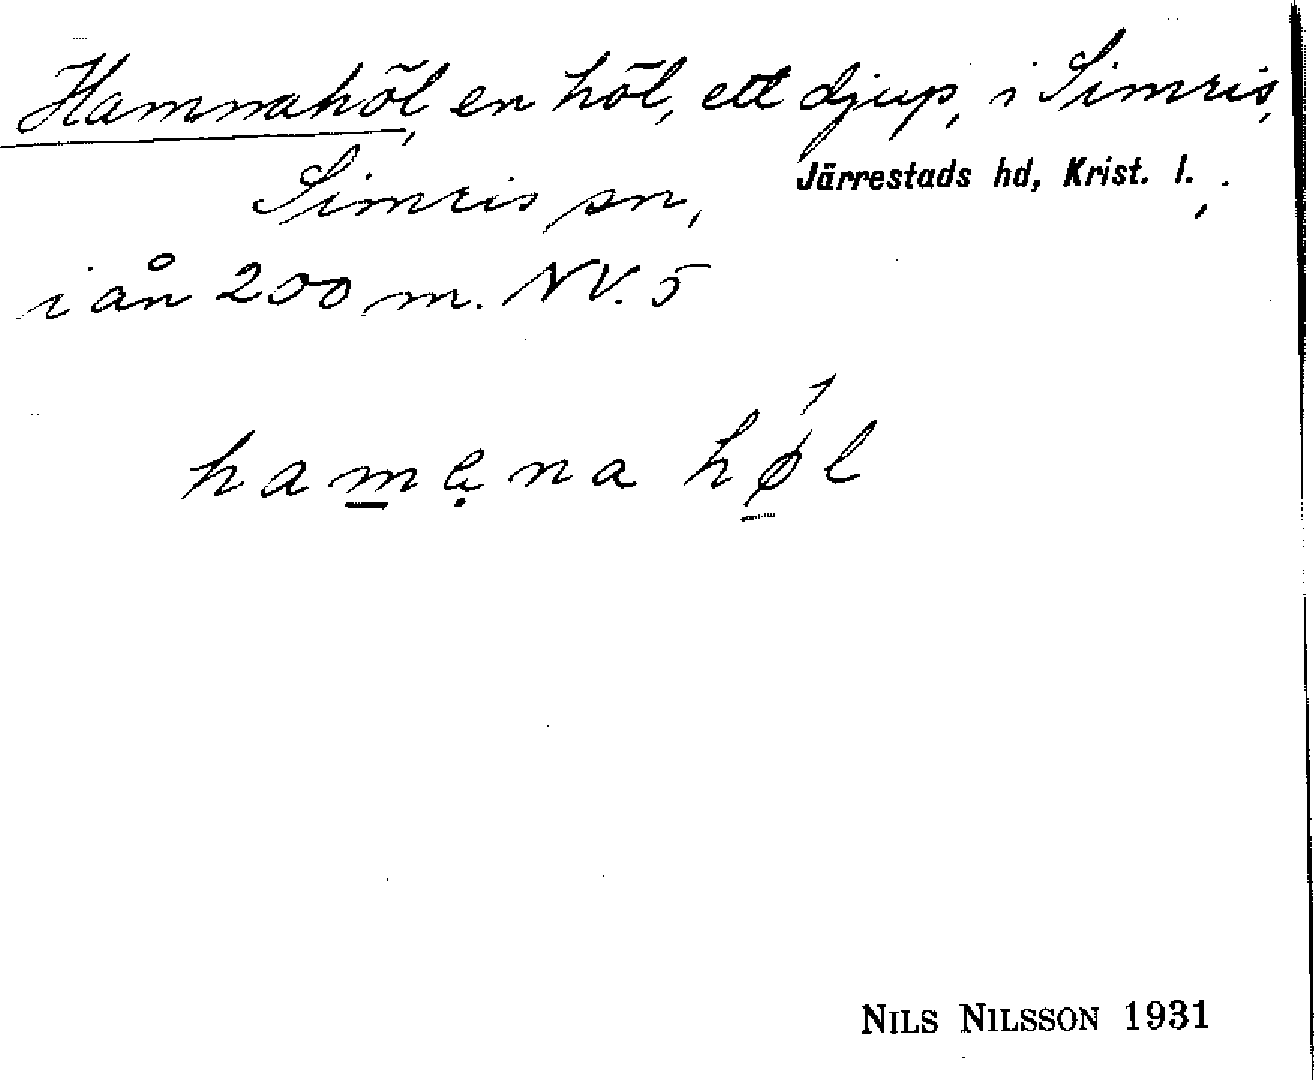 Hamnahöl, en höl, ett djup, i Simris,
Simris sn, Järrestads hd, Krist. l.,
i ån 200 m. NV. 5
hamęna høl
NILS NILSSON 1931